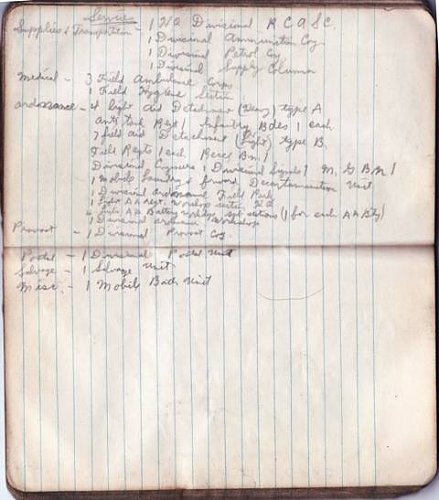 Service
Supplies & Transportation - 1 HQ Divisional RCASC.
1 Divisional Ammunition Coy
1 Divisional Petrol Coy
1 Divisional Supply Column
Medical - 3 Field Ambulance Corps
1 Field Hygiene Section
Ordonnance - 4 light Aid Detachment (Heavy) type A
Anti Tank Regt 1 Infantry Bdes 1 each
7 field aid Detachment (light) type B.
Field Regts 1 each Recce Bn 1
Divisional Engineers 1 Divisional Signals 1 M.G.BN 1
1 Mobile Laundry & forward Decontamination Unit
1 Divisional Ordnance Field Park
1 light AA regt. workshop section HQ
4 light AA Battery workshop sections (1 for each AA Bty)
Divisional Workshop
Provost - 1 Divisional Provost Coy
Postal - 1 Divisional Postal Unit
Salvage - 1 Salvage Unit
Misc. - 1 Mobile Bath Unit